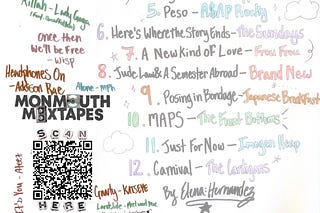 Killah - Lady Gaga
Once then
We'll be Free
- Wisp
Headphones On
- Addison Rae
Alone - mph
MONMOUTH
MIXTAPES
SCAN
HERE
It's You - Ateez
Gnarly - KATSEYE
5. Peso - A$AP Rocky
6. Here's Where the Story Ends - The Sundays
7. A New Kind of Love - Frou Frou
8. Jude Law & A Semester Abroad - Brand New
9. Posing in Bondage - Japanese Breakfast
10. MAPS - The Front Bottoms
11. Just For Now - Imogen Heap
12. Carnival - The Cardigans
By Elena Hernandez